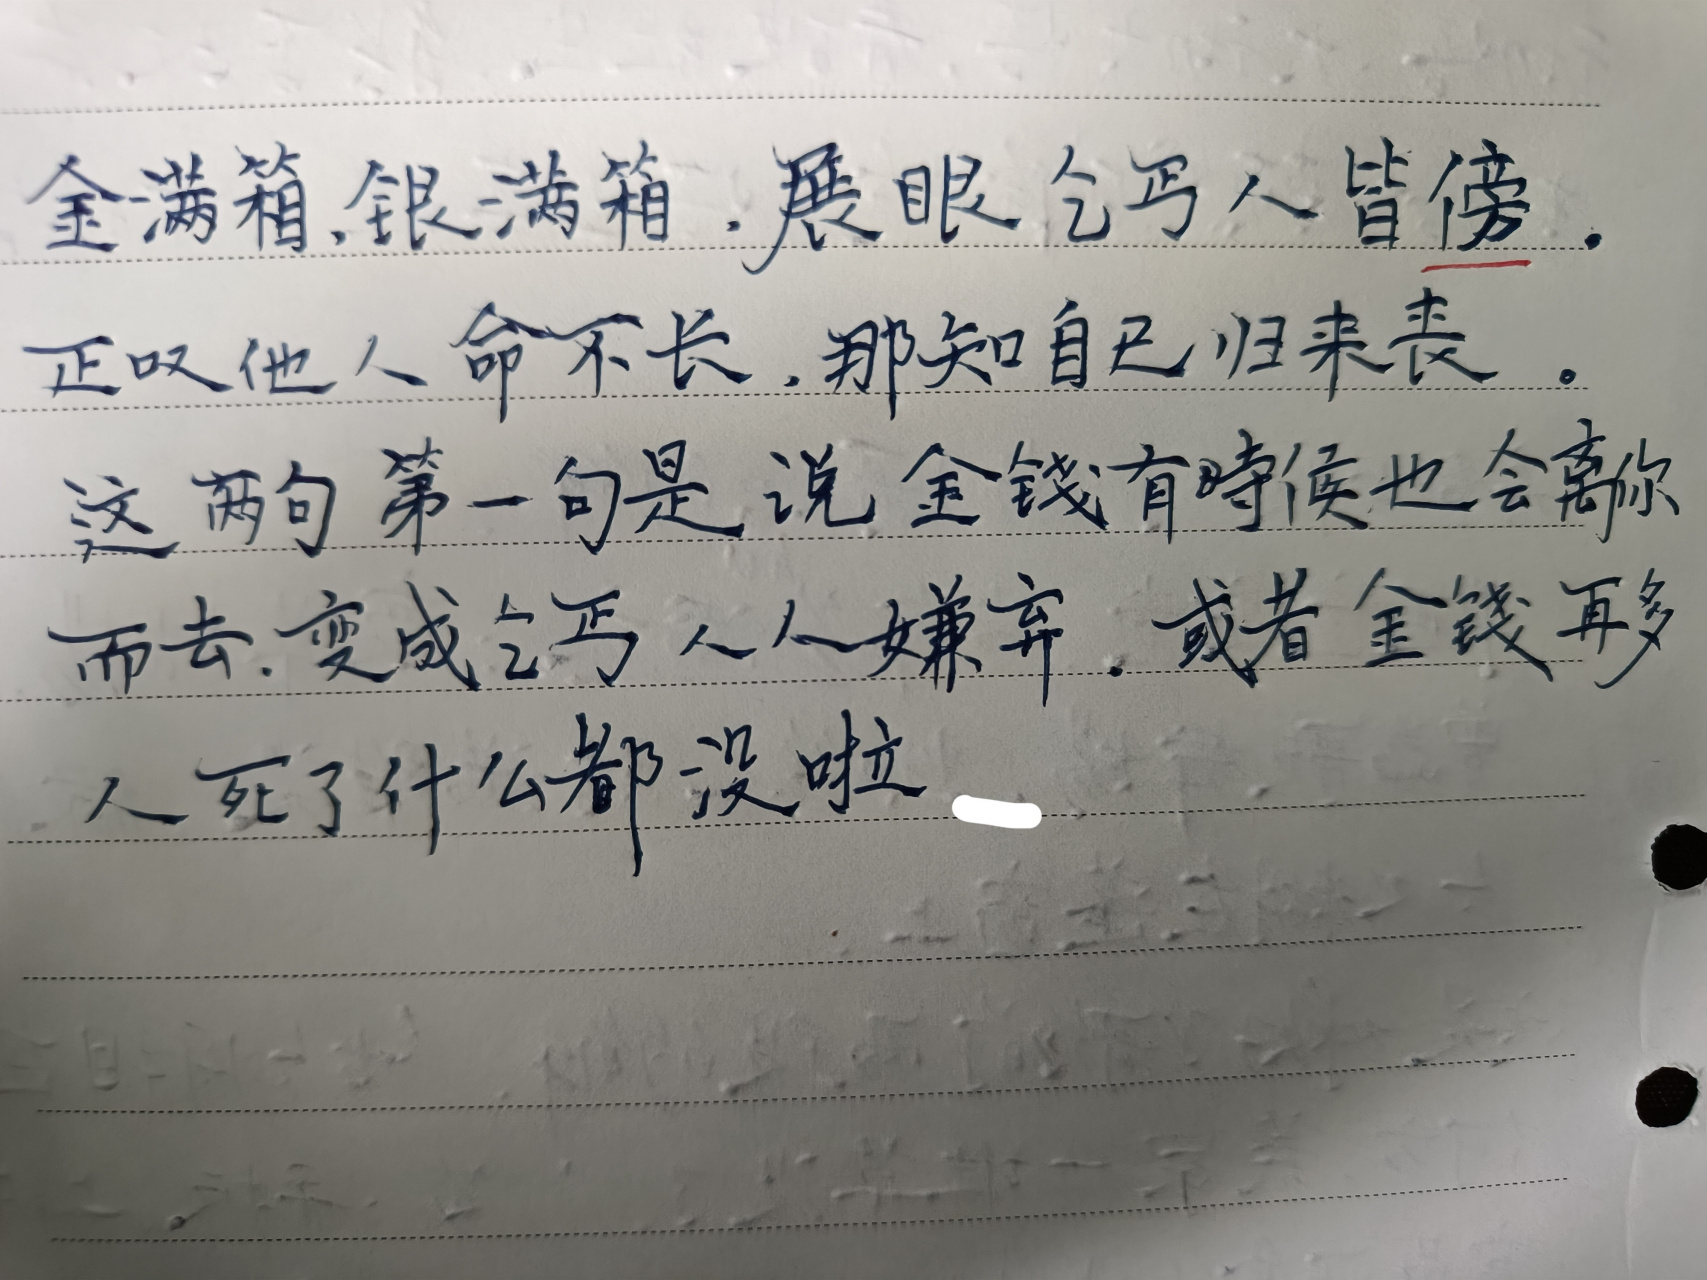 金满箱,银满箱.展眼乞丐人皆傍.
正叹他人命不长.那知自己归来丧.
这两句第一句是说金钱有時候也会离你
而去.变成乞丐人人嫌弃.或者金钱再多
人死了什么都没啦